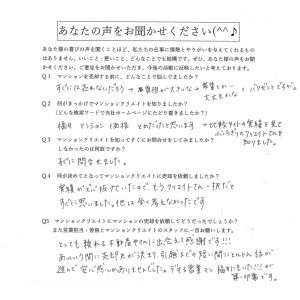 あなたの声をお聞かせください(^^♪
あなた様の喜びの声を聞くことほど、私たちの仕事に情熱とやりがいを与えてくれるもの
はありません。いいこと・悪いこと、どんなことでも結構です。ぜひ、あなた様の声をお聞
かせください。ご意見をお聞かせいただき、今後の活動に反映したいと考えております。
Q1 マンションを売却する前に、どんなことで悩んでましたか?
すぐには売れないだろう → 専業
大丈夫かな
Q2 何がきっかけでマンションクリエイトを知りましたか?
(どんな検索ワードで当社ホームページにたどり着きましたか?)
福岡 マンション 価格 とかだったと思います → 比較サイトの実績を見て
クリエイトさんを
知りました。
Q3 マンションクリエイトを知ってすぐにお問合せをしてみましたか?
しなかったのは何故ですか?
すぐに問合せました。
Q4 何が決めてとなってマンションクリエイトに売却を依頼しましたか?
実績がズバ抜けていたので、もうクリエイトさん一択だと
すぐに思いました。他は全く考えなかったです
Q5 マンションクリエイトにマンションの売却を依頼してどうだったでしょうか?
また営業担当・曽根とマンションクリエイトのスタッフに一言お願いします。
とっても頼れる不動産やさんに出会えて感謝です!!!
あっという間に売却先が決まり、引越までの短い間にとんとん話が
進んで安心感しかありませんでした。デキる営業マン 
第一印象です。